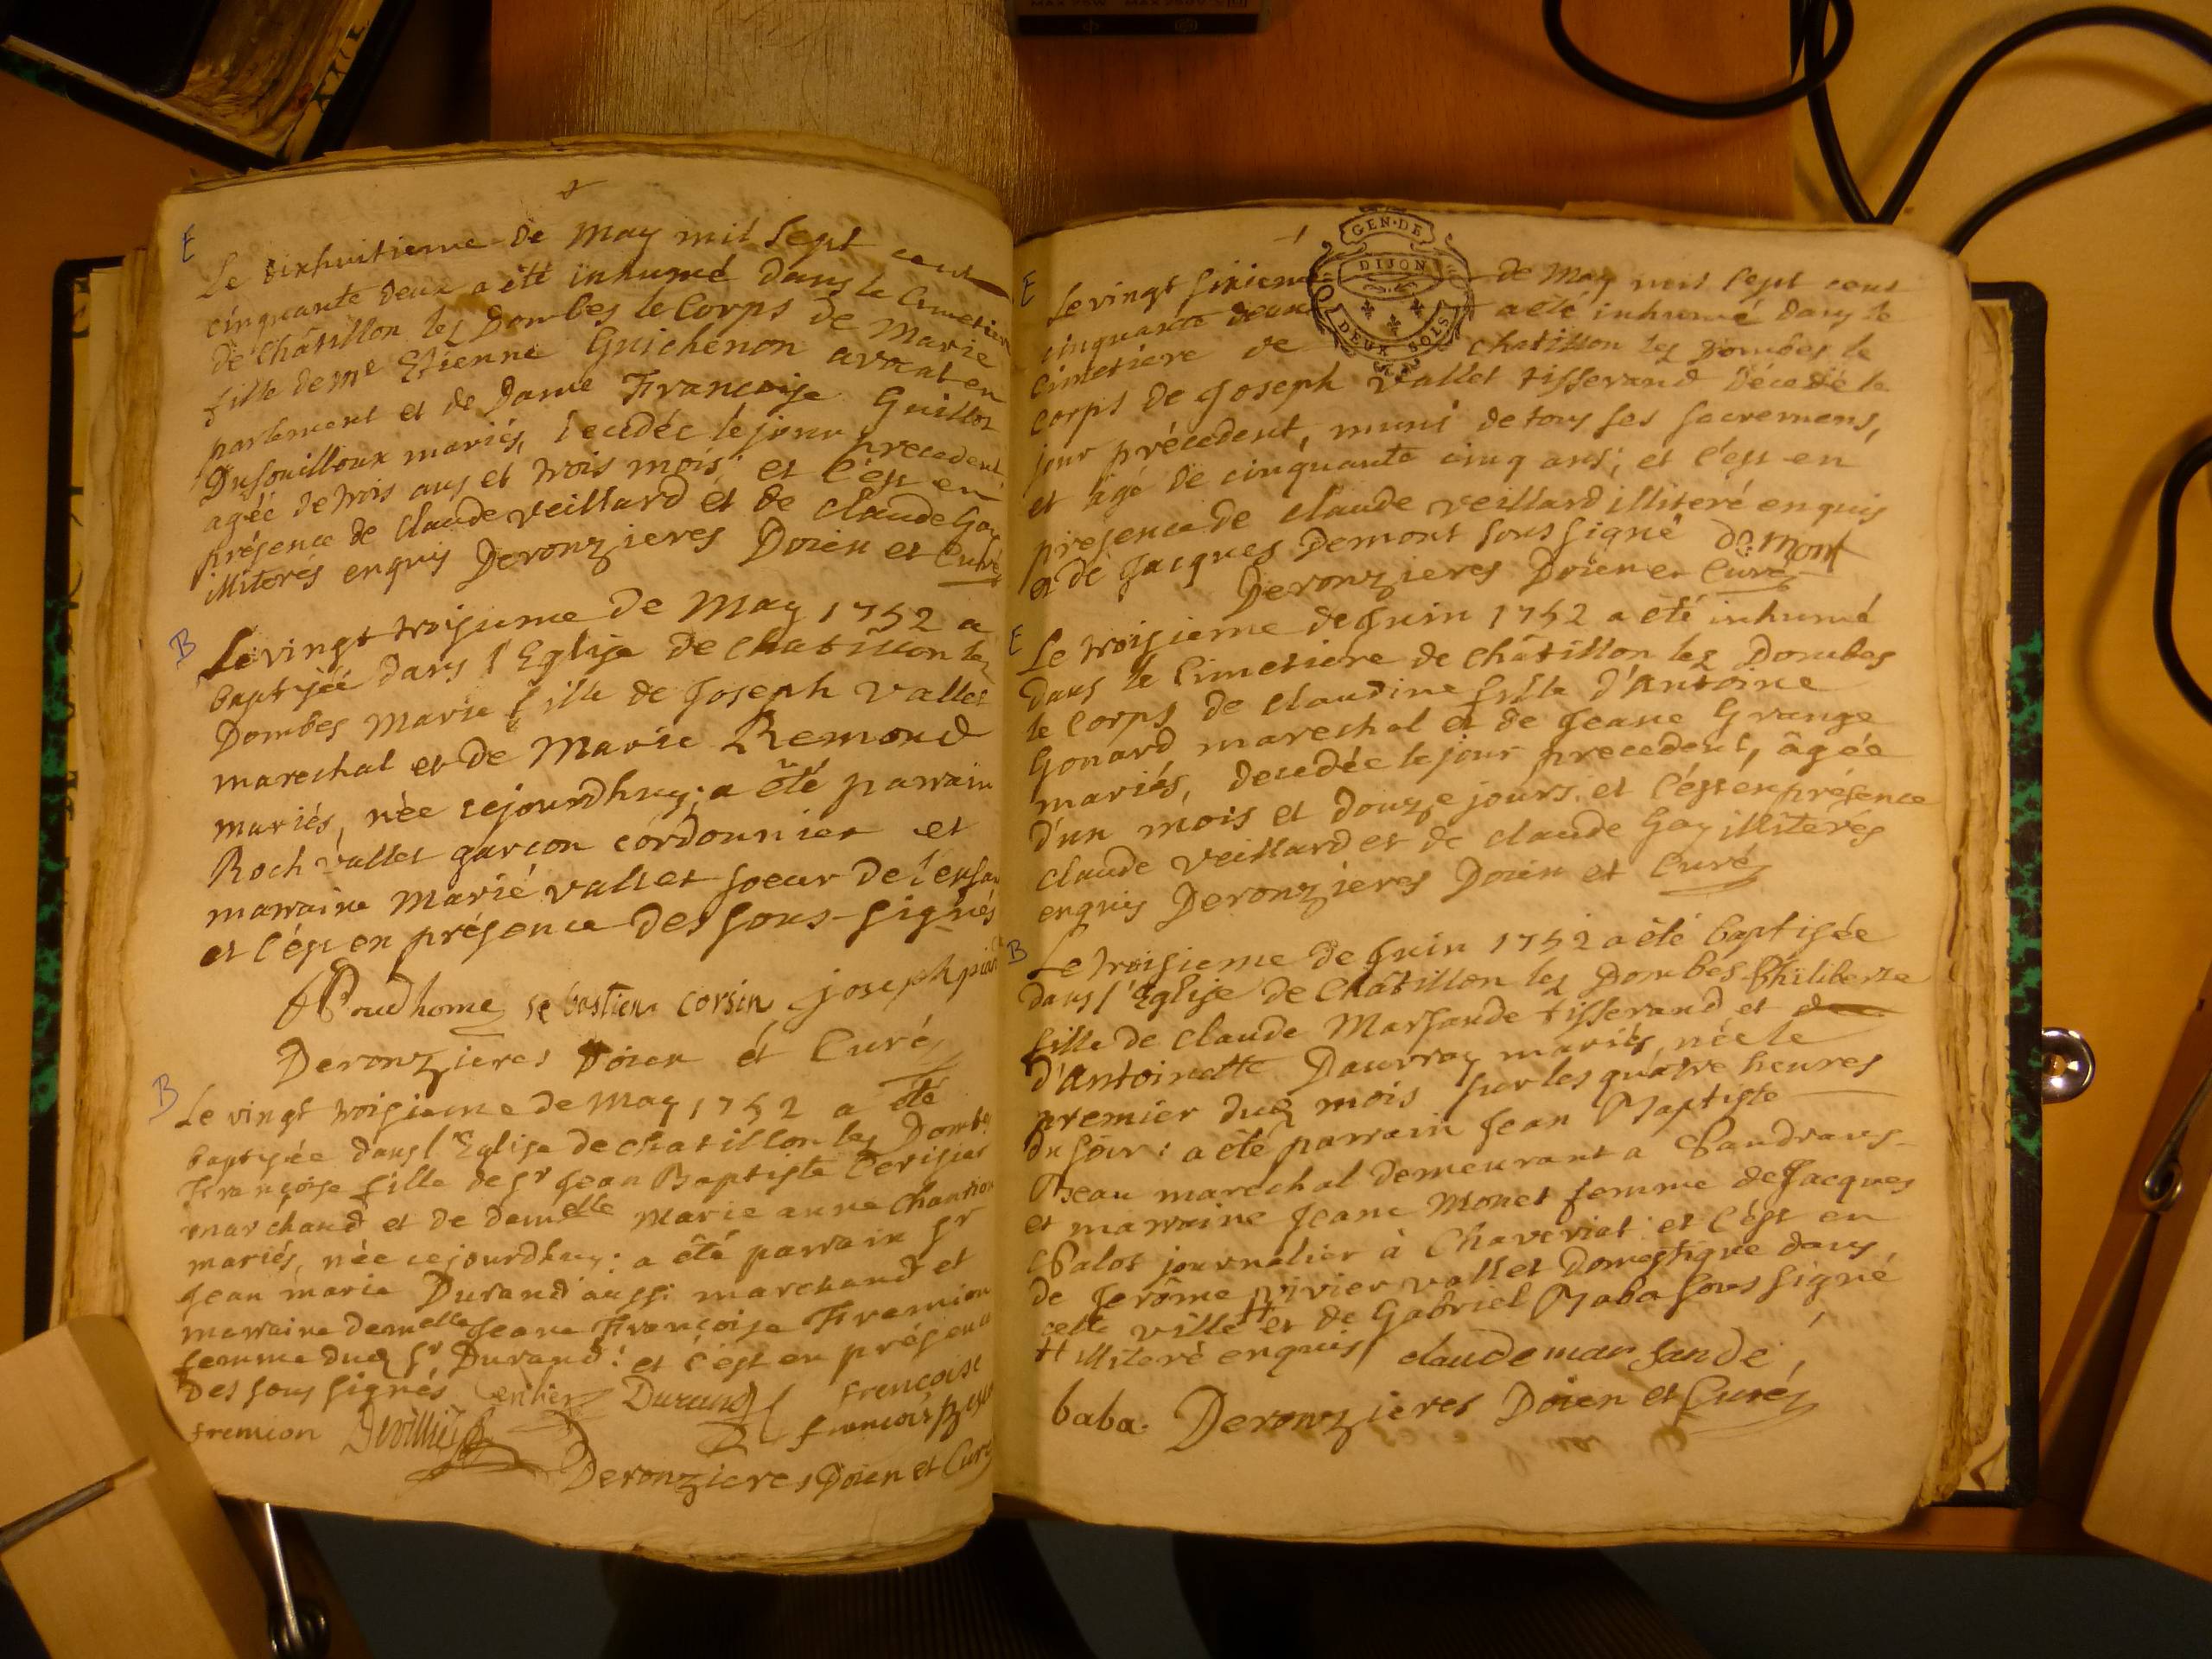 E
Le dixhuitieme de May mil sept cent
cinquante deux a été inhumé dans le Cimetiere
de Châtillon lez Dombes le Corps de Marie
fille de me Etienne Guichenon avocat en
parlement et de Dame Francoise Guillot
Dufouilloux mariés, decedée le jour precedent
agée de trois ans et trois mois; et c'est en
présence de Claude Veillard et de Claude Gay
illiterés enquis Deronzieres Doien et Curé
B
Le vingt troisieme de May 1752 a
baptisée dans l'Eglise de Chatillon lez
Dombes Marie fille de Joseph Vallet
mareschal et de Marie Remond
mariés, née cejourdhuy; a été parrain
Roch Vallet garcon cordonnier et
marraine Marie Vallet soeur de l'enfan
et c'est en présence des sous-signés
Proudhome sebastien corsin joseph
Deronzieres Doien et Curé
B
Le vingt troisieme de May 1752 a été
baptisée dans l'Eglise de Chatillon lez Dombes
Françoise fille de sr Jean Baptiste Cerisier
marchand et de demelle Marie anne Chantion
mariés, née cejourdhuy: a été parrain sr
Jean marie Durand aussi marchand et
marraine demelle Jeane Françoise Fremion
femme dud sr Durand: et c'est en présence
des sous signés Durand francoise
fremion francois
Deronzieres Doien et Curé
GEN·DE
DIJON
DEUX SOLS
E
Le vingt sixieme de May mil sept cent
cinquante deux a été inhumé dans le
cimetiere de chatillon lez Dombes le
corps de Joseph Vallet tisserand décedé le
jour précedent, muni de tous ses sacremens,
et âgé de cinquante cinq ans; et c'est en
presence de claude veillard illiteré enquis
et de Jacques Demont soussigné demont
Deronzieres Doien et Curé
E
Le troisieme de Juin 1752 a été inhumé
dans le Cimetiere de Châtillon lez Dombes
le Corps de Claudine fille d'Antoine
Gonard mareschal et de Jeane Grange
mariés, decedée le jour precedent, âgée
d'un mois et douze jours; et c'est en présence
claude Veillard et de claude Gay illiterés
enquis Deronzieres Doien et Curé
B
Le troisieme de Juin 1752 a été baptisée
dans l'Eglise de Châtillon lez Dombes Philiberte
fille de Claude Marsande tisserand et
d'Antoinette Daurray mariés, née le
premier dud mois sur les quatre heures
du soir: a été parrain Jean Baptiste
Beau marechal demeurant a Sandrans
et marraine Jeane Monet femme de Jacques
Palot journalier à Chaveriat: et c'est en
de Jerôme Vivier vallet domestique dans
cette ville # et de Gabriel Baba sous signé
# illiteré enquis claude mar sande
baba. Deronzieres Doien et Curé